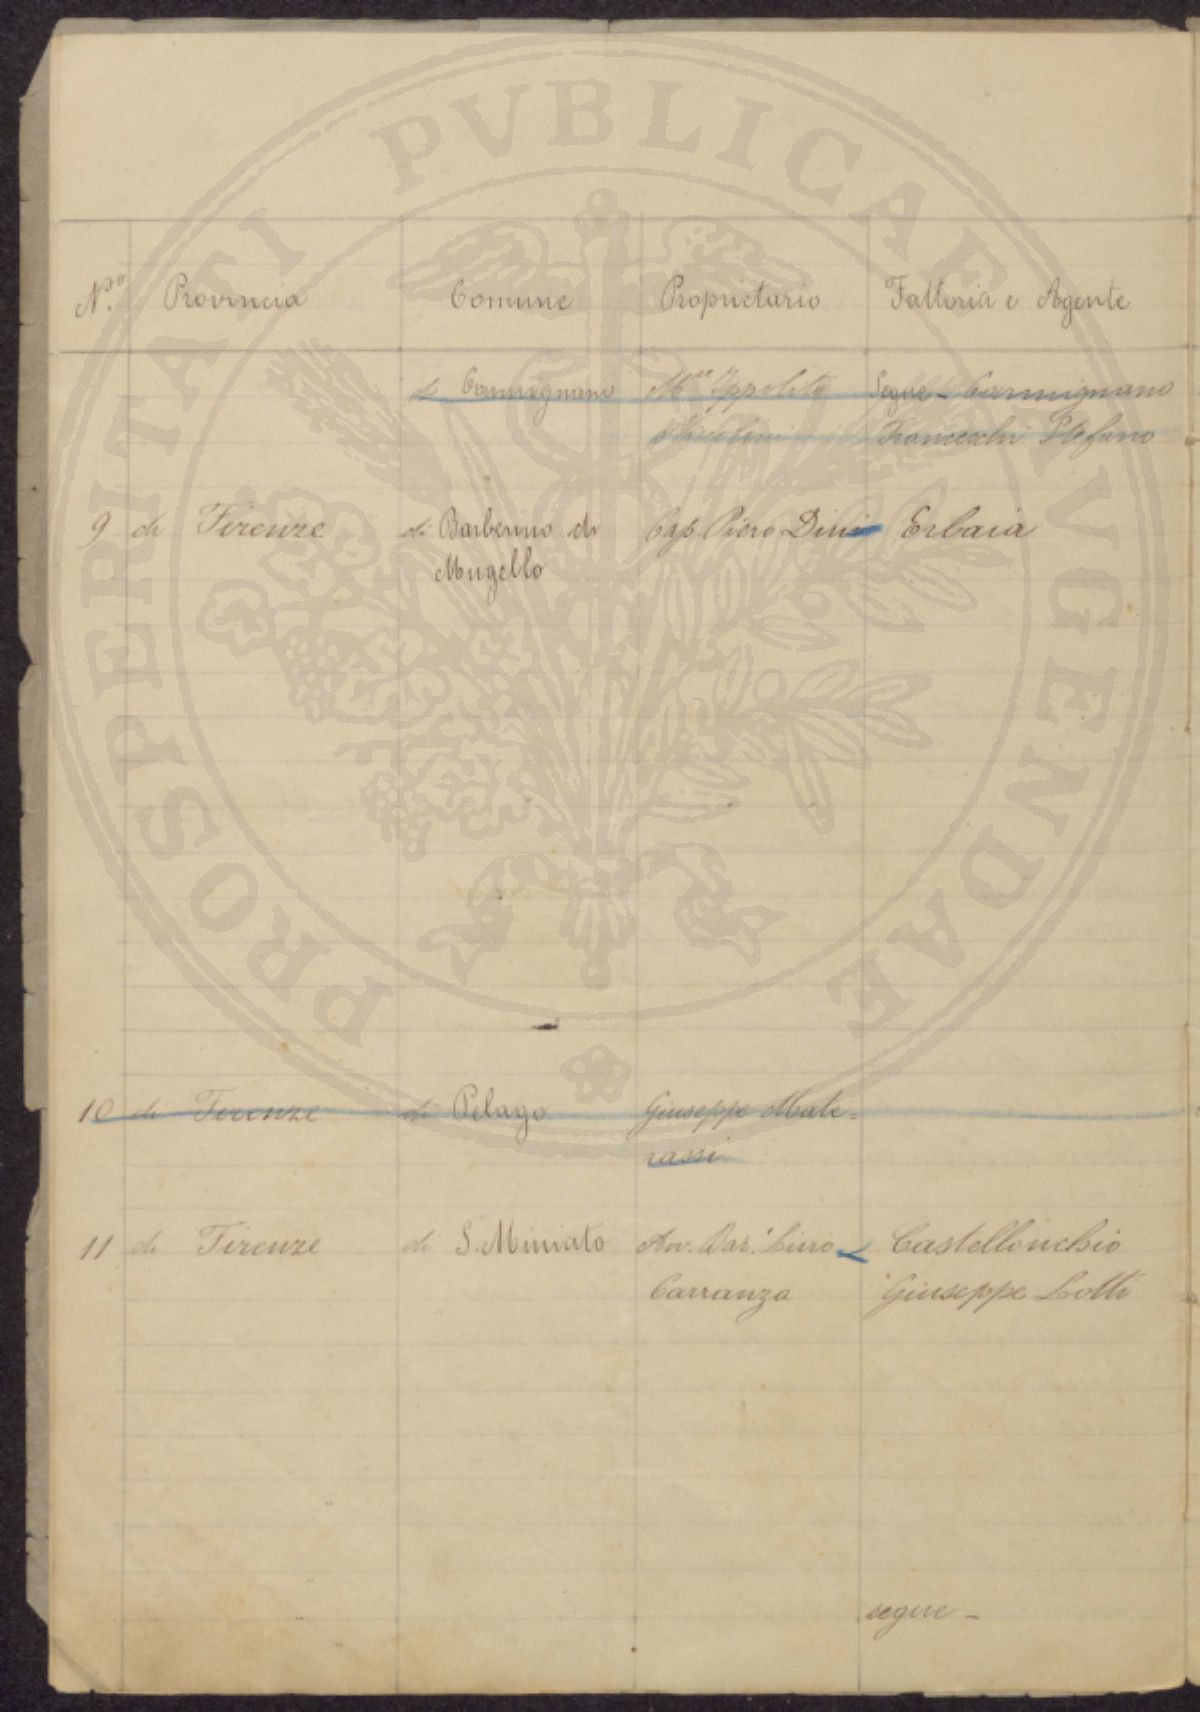 PROSPERITATI PVBLICAE AVGENDAE
N.º Provincia Comune Proprietario Fattoria e Agente
di Carmignano M.se Ippolito Segue - Carmignano
Niccolini Franceschi Stefano
9 di Firenze di Barberino di Cap. Piero Dini Erbaia
Mugello
10 di Firenze di Pelago Giuseppe Mate-
rassi
11 di Firenze di S. Miniato Avv. Bar. Ciro Castellonchio
Carranza Giuseppe Lotti
segue -